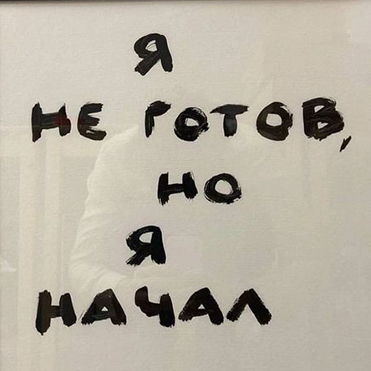 Я
НЕ ГОТОВ,
НО
Я
НАЧАЛ